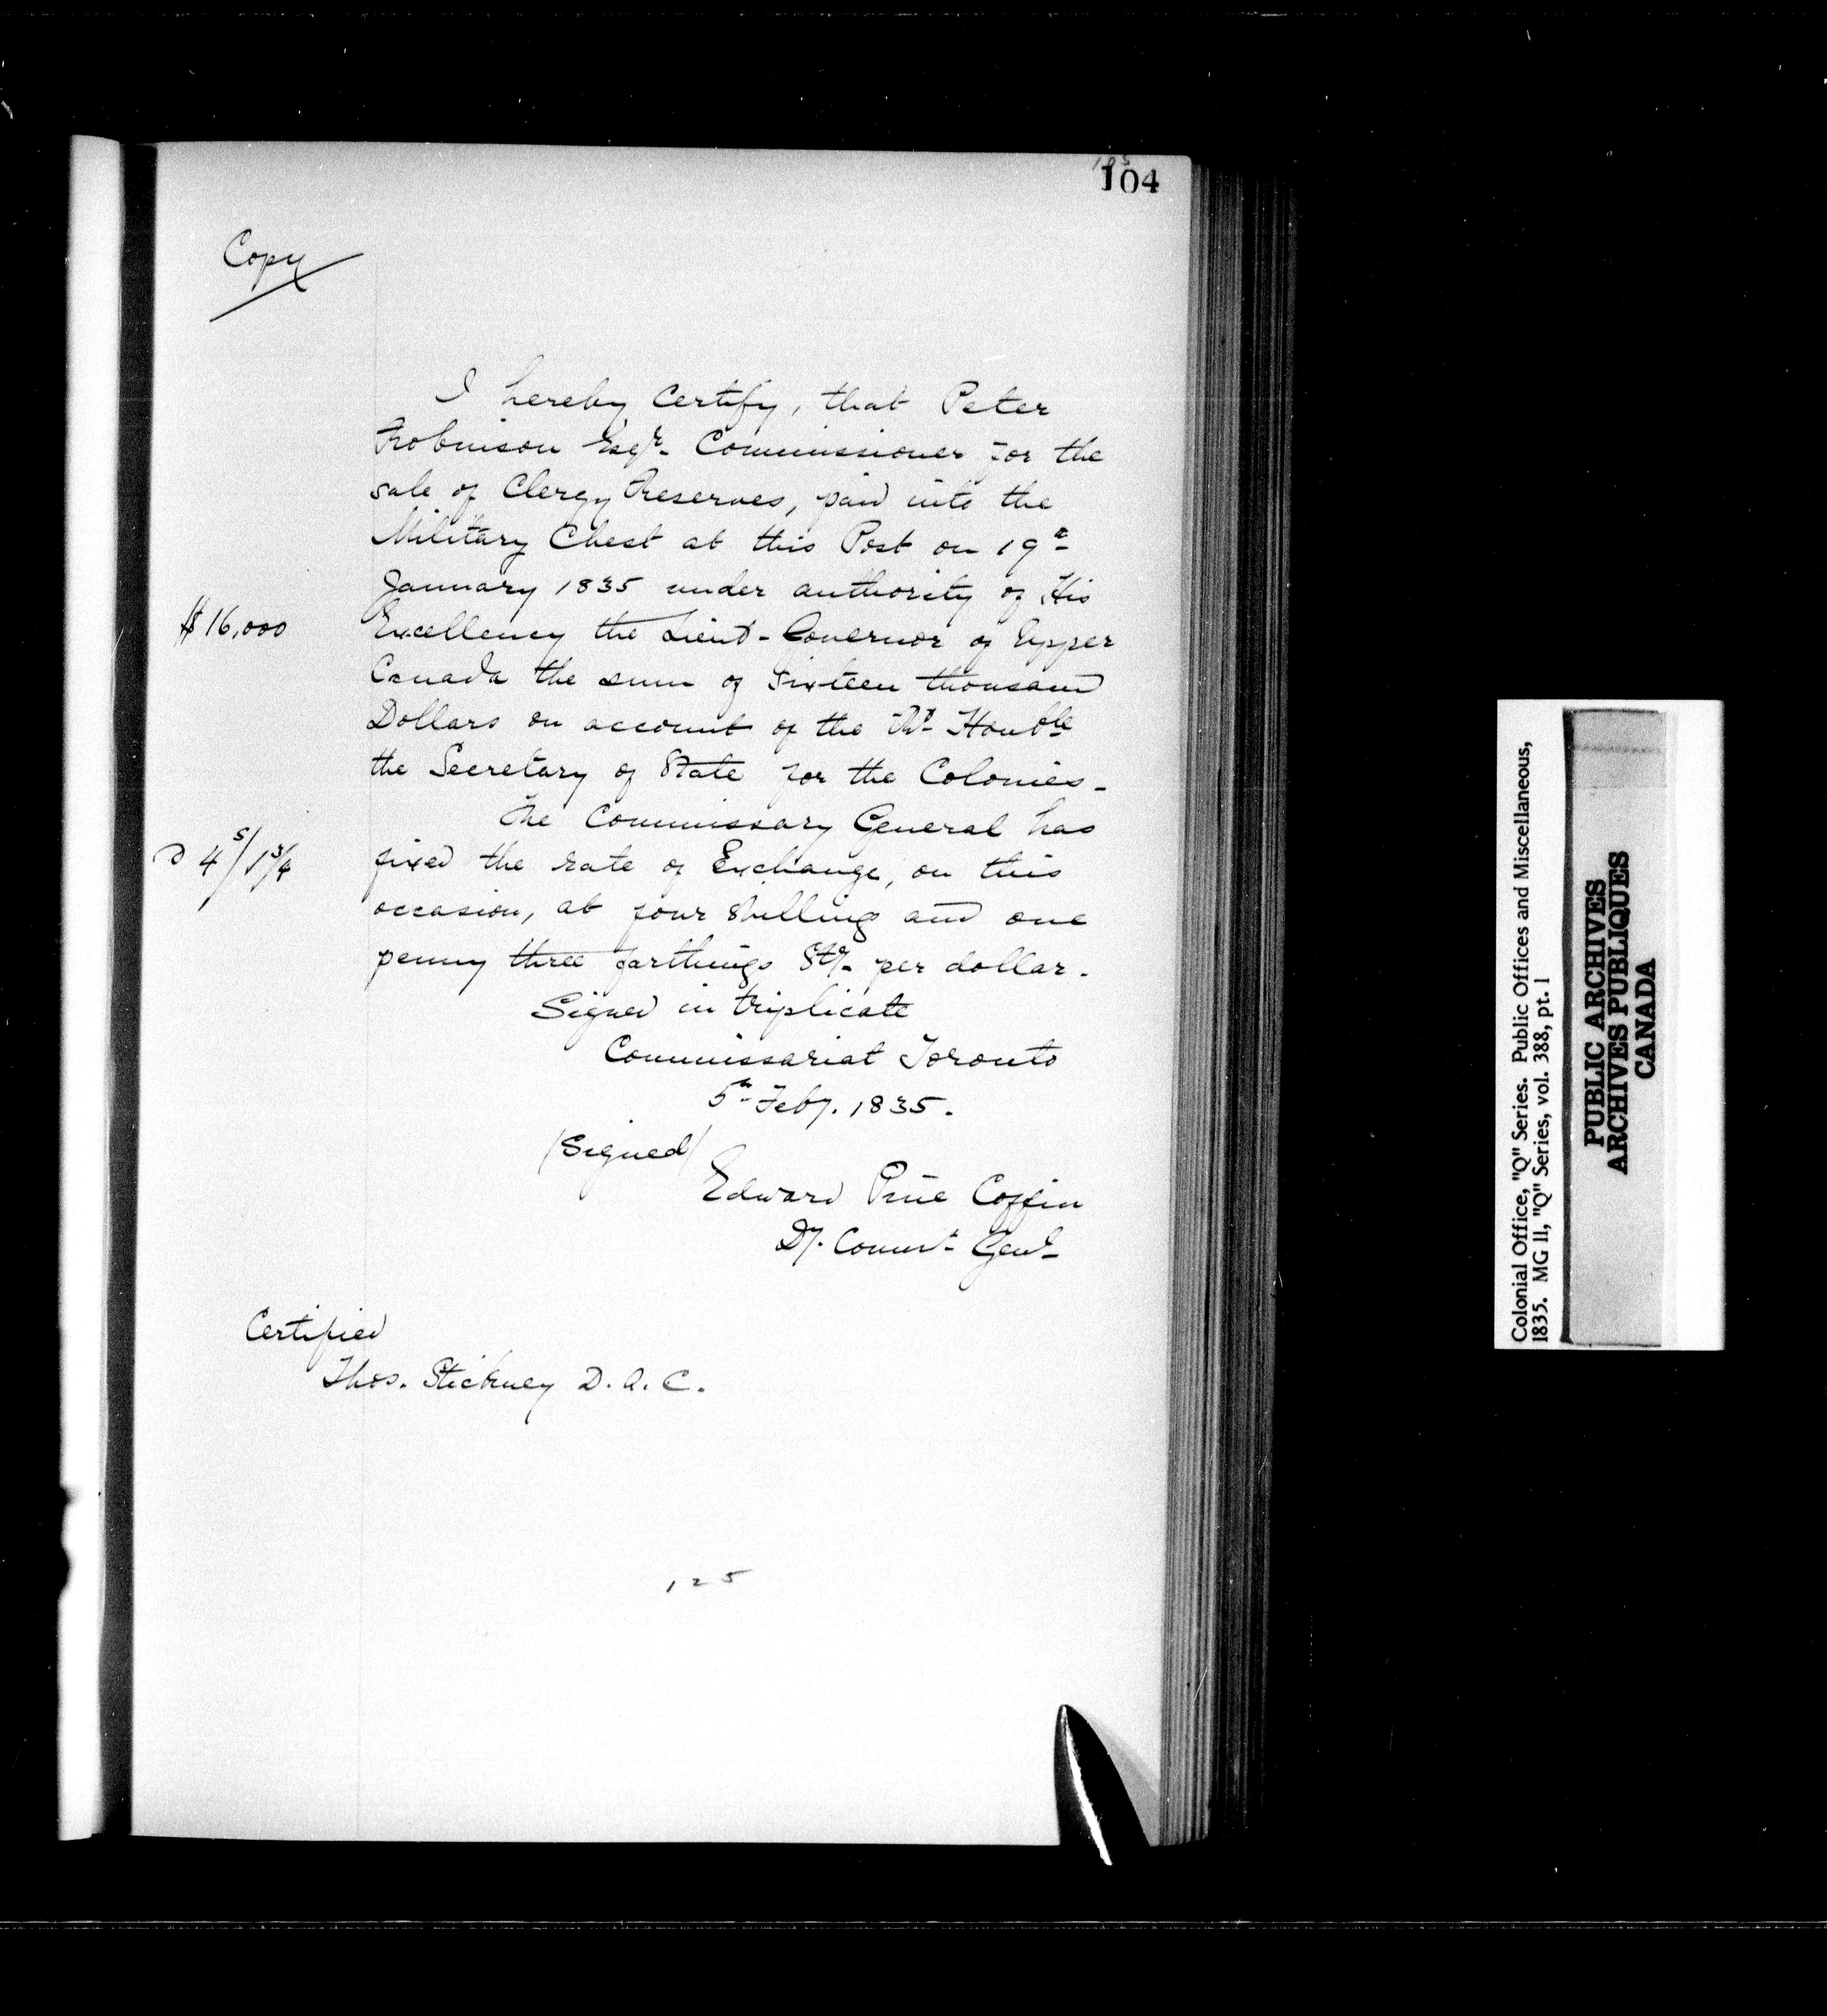 103
104
Copy
I hereby certify, that Peter
Robinson Esqr. Commissioner for the
sale of Clergy Reserves, paid into the
Military Chest at this Post on 19th
January 1835 under authority of His
$16,000
Excellency the Lieut-Governor of Upper
Canada the sum of Sixteen thousand
Dollars on account of the Rt. Honble
the Secretary of State for the Colonies-
The Commissary General has
4s/1¾
fixed the rate of Exchange, on this
occasion, at four shillings and one
penny three farthings Stg. per dollar.
Signed in triplicate
Commissariat Toronto
5th Feby. 1835.
/Signed/
Edward Pine Coffin
Dy. Commy. Genl.
Certified
Thos. Stickney D.A.C.
125
Colonial Office, "Q" Series. Public Offices and Miscellaneous,
1835. MG 11, "Q" Series, vol. 388, pt. 1
PUBLIC ARCHIVES
ARCHIVES PUBLIQUES
CANADA